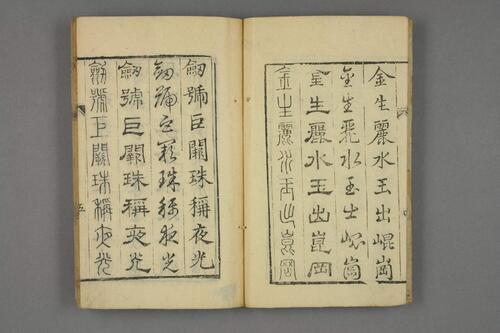 金生麗水玉出崐崗
金生麗水玉出崐崗
金生麗水玉出崑岡
金生麗水玉出崑岡
劒號巨闕珠稱夜光
劒號巨闕珠稱夜光
劒號巨闕珠稱夜光
劒號巨闕珠稱夜光
五